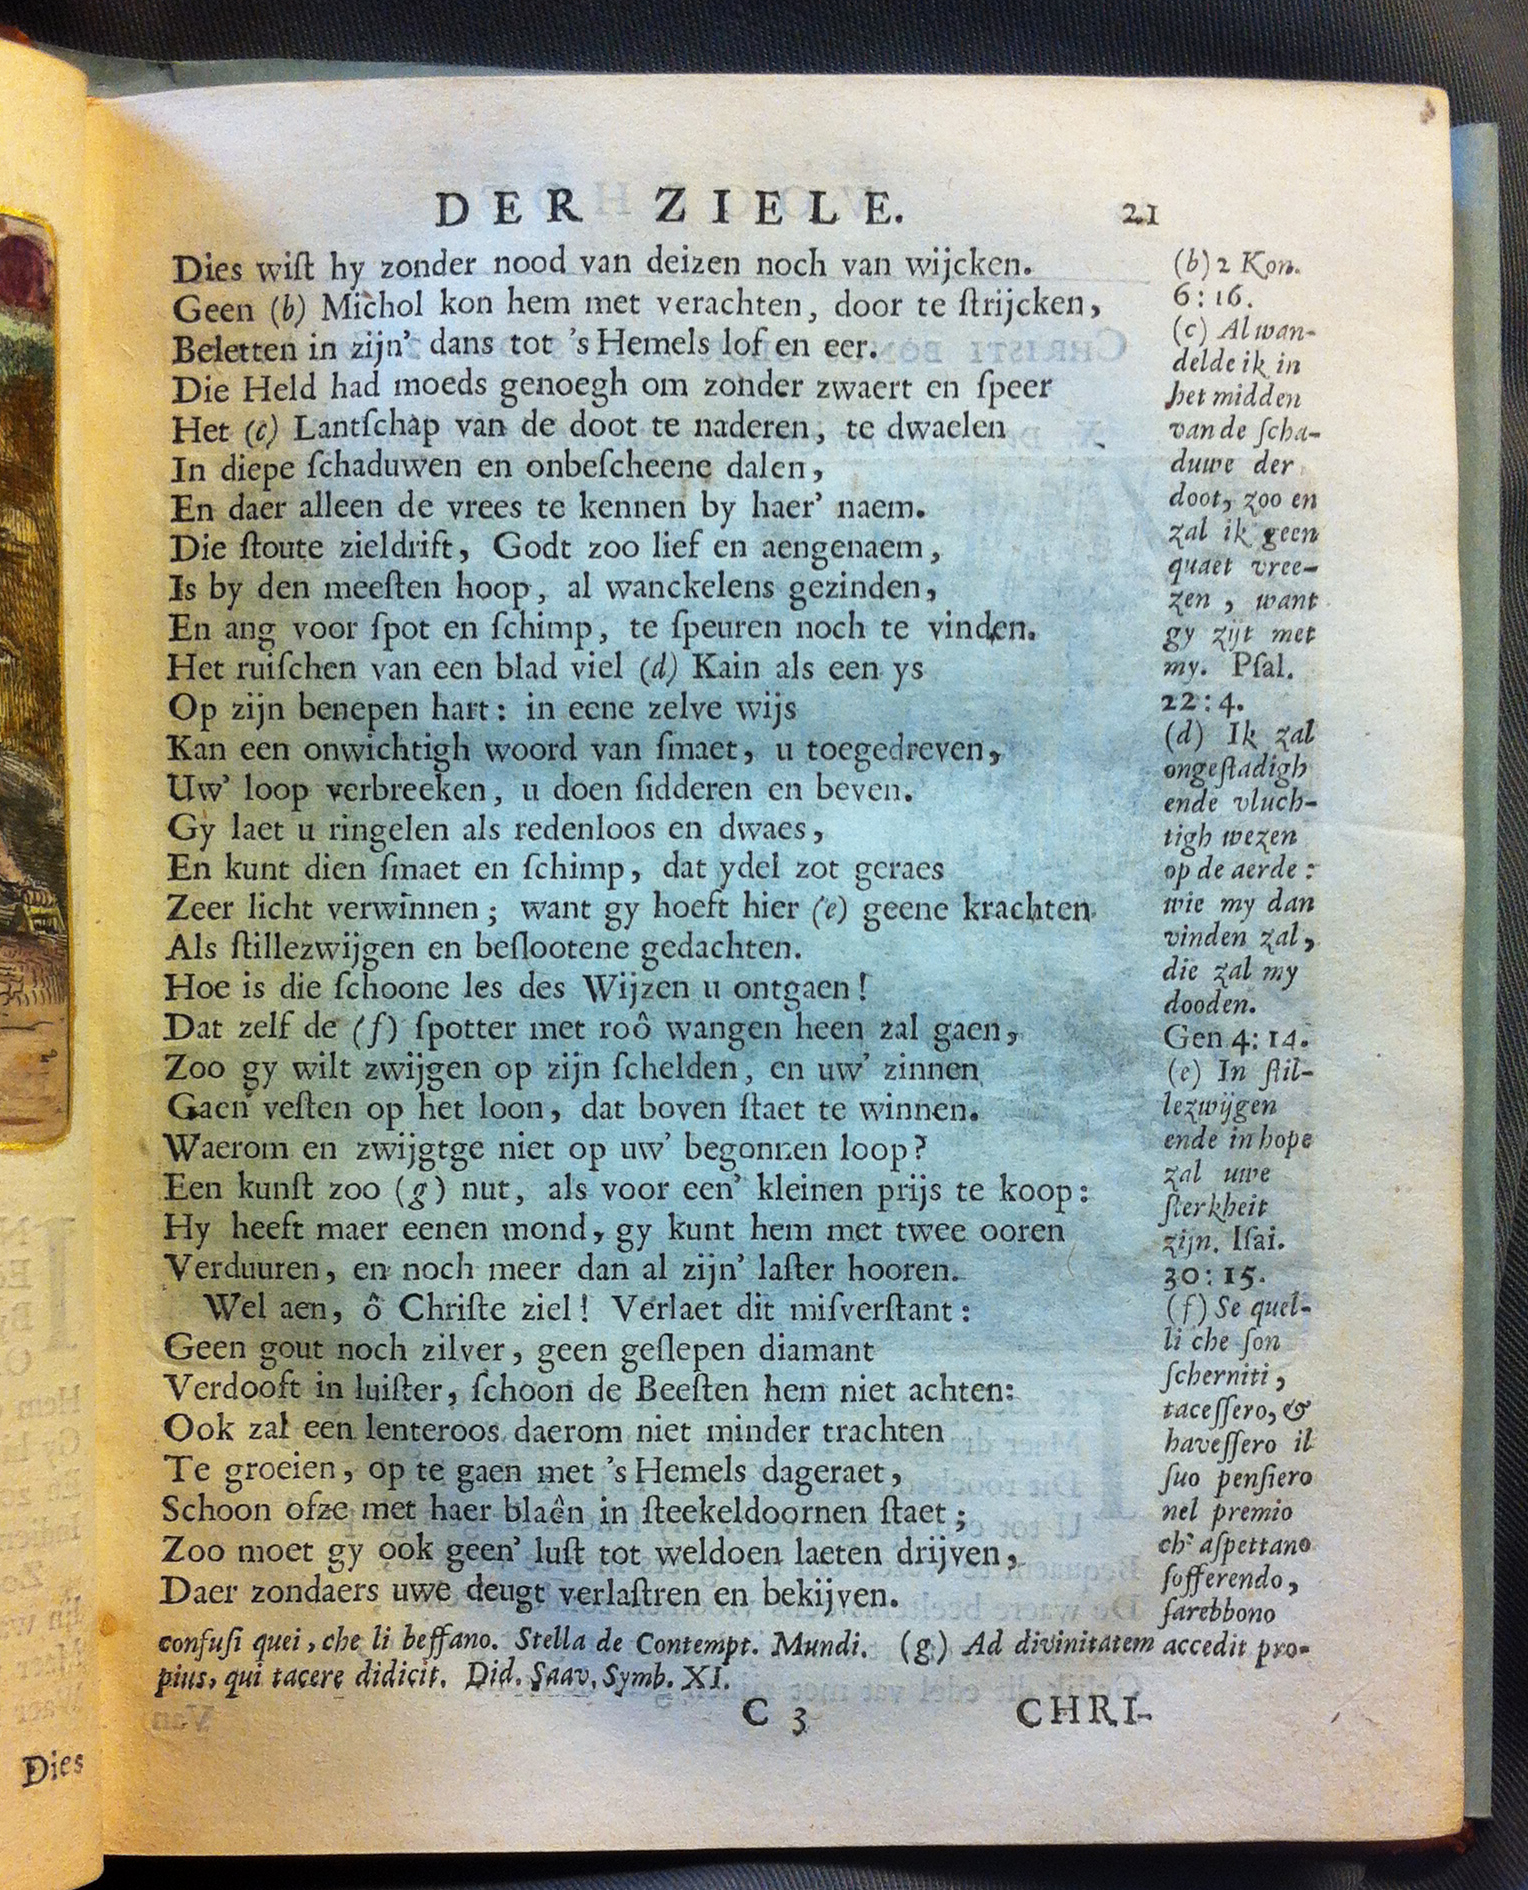 DER ZIELE. 21
Dies wist hy zonder nood van deizen noch van wijcken.
Geen (b) Michol kon hem met verachten, door te strijcken,
Beletten in zijn' dans tot 's Hemels lof en eer.
Die Held had moeds genoegh om zonder zwaert en speer
Het (c) Lantschap van de doot te naderen, te dwaelen
In diepe schaduwen en onbescheene dalen,
En daer alleen de vrees te kennen by haer' naem.
Die stoute zieldrift, Godt zoo lief en aengenaem,
Is by den meesten hoop, al wanckelens gezinden,
En ang voor spot en schimp, te speuren noch te vinden.
Het ruischen van een blad viel (d) Kain als een ys
Op zijn benepen hart: in eene zelve wijs
Kan een onwichtigh woord van smaet, u toegedreven,
Uw' loop verbreeken, u doen sidderen en beven.
Gy laet u ringelen als redenloos en dwaes,
En kunt dien smaet en schimp, dat ydel zot geraes
Zeer licht verwinnen; want gy hoeft hier (e) geene krachten
Als stillezwijgen en beslootene gedachten.
Hoe is die schoone les des Wijzen u ontgaen!
Dat zelf de (f) spotter met roô wangen heen zal gaen,
Zoo gy wilt zwijgen op zijn schelden, en uw' zinnen
Gaen vesten op het loon, dat boven staet te winnen.
Waerom en zwijgtge niet op uw' begonnen loop?
Een kunst zoo (g) nut, als voor een' kleinen prijs te koop:
Hy heeft maer eenen mond, gy kunt hem met twee ooren
Verduuren, en noch meer dan al zijn' laster hooren.
Wel aen, ô Christe ziel! Verlaet dit misverstant:
Geen gout noch zilver, geen geslepen diamant
Verdooft in luister, schoon de Beesten hem niet achten:
Ook zal een lenteroos daerom niet minder trachten
Te groeien, op te gaen met 's Hemels dageraet,
Schoon ofze met haer blaên in steekeldoornen staet;
Zoo moet gy ook geen' lust tot weldoen laeten drijven,
Daer zondaers uwe deugt verlastren en bekijven.
(b) 2 Kon.
6:16.
(c) Al wan-
delde ik in
het midden
van de scha-
duwe der
doot, zoo en
zal ik geen
quaet vree-
zen, want
gy zijt met
my. Psal.
22:4.
(d) Ik zal
ongestadigh
ende vluch-
tigh wezen
op de aerde:
wie my dan
vinden zal,
die zal my
dooden.
Gen 4:14.
(e) In stil-
lezwijgen
ende in hope
zal uwe
sterkheit
zijn. Isai.
30:15.
(f) Se quel-
li che son
scherniti,
tacessero, &
havessero il
suo pensiero
nel premio
ch' aspettano
sofferendo,
sarebbono
confusi quei, che li beffano. Stella de Contempt. Mundi. (g) Ad divinitatem accedit pro-
pius, qui tacere didicit. Did. Saav. Symb. XI.
C 3 CHRI-
Dies